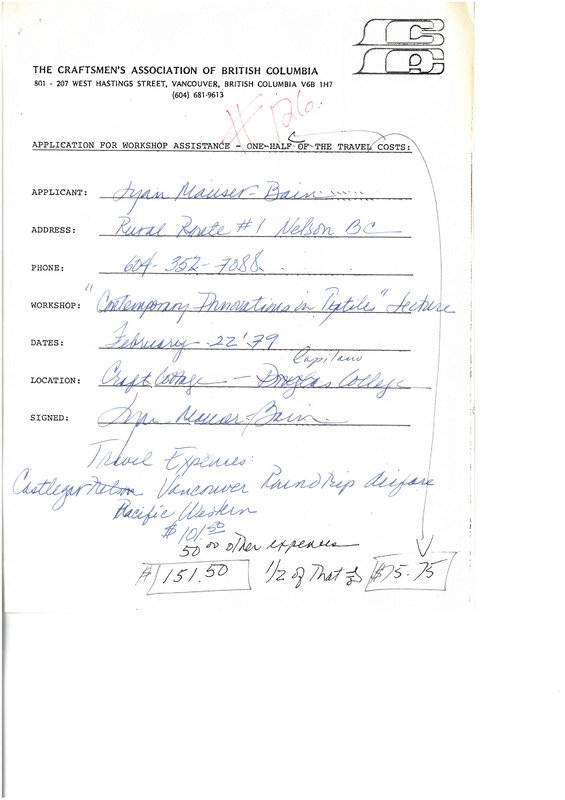 THE CRAFTSMEN'S ASSOCIATION OF BRITISH COLUMBIA
801 - 207 WEST HASTINGS STREET, VANCOUVER, BRITISH COLUMBIA V6B 1H7
(604) 681-9613
#126.
APPLICATION FOR WORKSHOP ASSISTANCE - ONE-HALF OF THE TRAVEL COSTS:
APPLICANT: Lynn Mauser-Bain
ADDRESS: Rural Route #1 Nelson BC
PHONE: 604-352-7088
WORKSHOP: "Contemporary Innovations in Textiles" Lecture
DATES: February 22 '79
Capilano
LOCATION: Craft Cottage - Douglas College
SIGNED: Lynn Mauser-Bain
Travel Expenses:
Castlegar Vancouver Round Trip Airfare
Pacific Western
$101.50
50 00 other expenses
$151.50 1/2 of that is $75.75